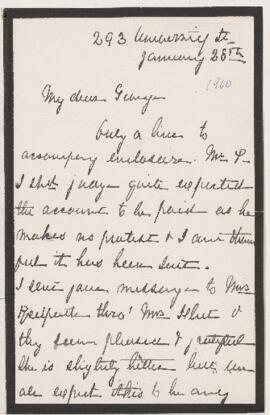 293 University St.
January 28th
1900
My dear George
Only a line to
accompany enclosure. Mr. P.
I shd. judge quite expected
the account to be paid as he
makes no protest & I am
it has been sent.
I sent your message to Mrs
thro' Mrs &
they seem pleased & grateful
She is slightly better but we
all expect this to be only